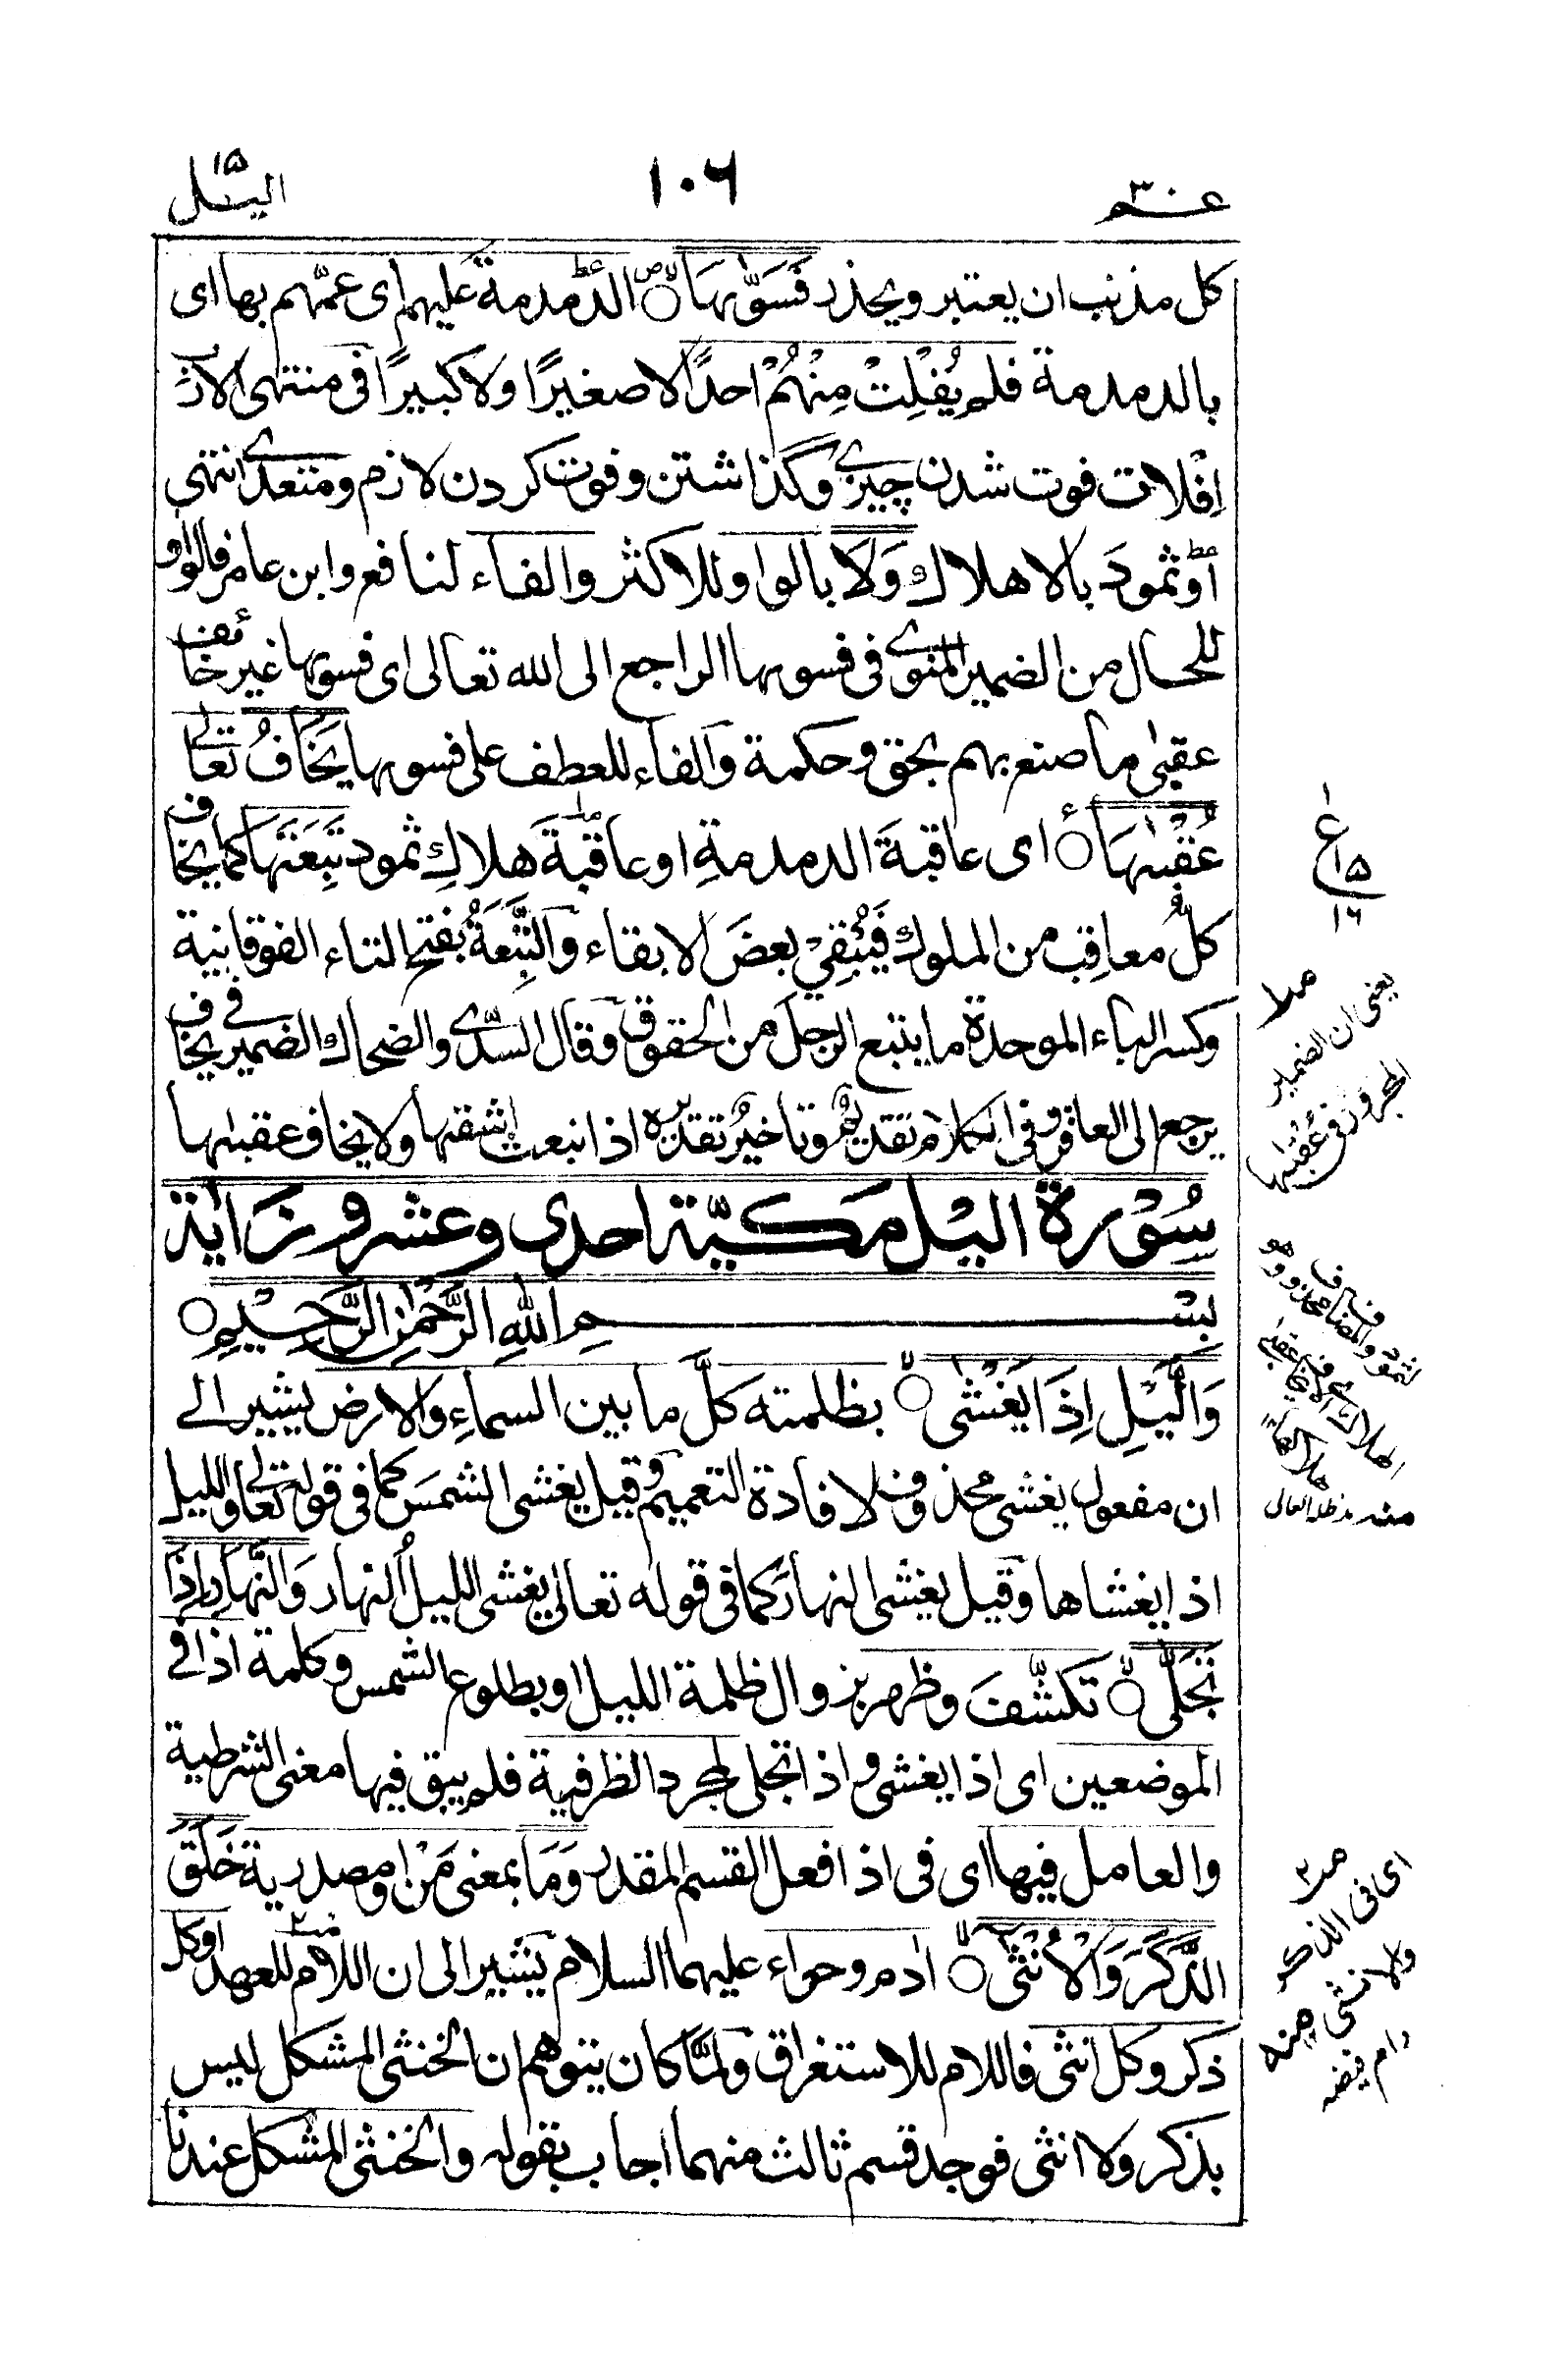 عم ٣٠
١٠٦
اليل
١٥
كل مذنب ان يعتبر ويحذر فَسَوّٰىهَا الدمدمة عليهم اى عمّهم بها اى
بالدمدمة فلم يُفْلِتْ مِنْهُمْ احدًا لا صغيرًا ولا كبيرًا فى منتهى الارب
اِفْلات فوت شدن چيزے وگذاشتن وفوت كردن لازم ومتعدى انتهى
اَوْ ثمودَ بالاهلاك وَلَا بالواو للاكثر والفاء لنافع وابن عامر فالواو
للحال من الضمير المنوى فى فسوىها الراجع الى الله تعالى اى فسوىها غير خائف
عقبى ما صنع بهم بحق وحكمة والفاء للعطف على فسوىها يَخَافُ تعالى
عُقْبٰىهَا اى عاقبةَ الدمدمةِ او عاقبةَ هلاكِ ثمود تَبِعَتَهَا كما يخاف
كلُّ معاقِبٍ من الملوك فَيُبْقِيْ بعضَ الابقاء والتَّبِعَةُ بفتح التاء الفوقانية
وكسر الباء الموحدة ما يتبع الرجلَ من الحقوق وقال السدّى والضحاك الضمير فى يخاف
يرجع الى العاقر وفى الكلام تقديمٌ وتاخيرٌ تقديره اذ انبعث اشقىها ولا يخاف عقبىها
سُوْرة اليْل مَكيّة احدى وعشرون اٰية
بِسْمِ اللهِ الرَّحْمٰنِ الرَّحِيْمِ
وَالَّيْلِ اِذَا يَغْشٰى بظلمته كلَّ ما بين السماءِ والارض يشير الى
ان مفعول يغشى محذوف لافادة التعميم وقيل يغشى الشمسَ كما فى قوله تعالى والليل
اذا يغشاها وقيل يغشى النهارَ كما فى قوله تعالى يغشى الليلُ النهار وَالنَّهَارِ اِذَا
تَجَلّٰى تَكشَّفَ وظهر بزوال ظلمة الليل او بطلوع الشمس وكلمة اذا فى
الموضعين اى اذا يغشى واذا تجلى لمجرد الظرفية فلم يبق فيها معنى الشرطية
والعامل فيها اى فى اذا فعل القسم المقدر وَمَا بمعنى مَنْ او مصدرية خَلَقَ
الذَّكَرَ وَالْاُنْثٰى ادم وحواء عليهما السلام يشير الى ان اللام للعهد او كل
ذكر وكل انثى فاللام للاستغراق ولمّا كان يتوهم ان الخنثى المشكل ليس
بذكر ولا انثى فوجد قسم ثالث منهما اجاب بقوله والخنثى المشكل عندنا
ع
١٥
١٦
يعنى ان الضمير
المجرور فى عقبٰىها
لثمود والمضاف محذوف وهو
الهلاك
منه مدظله العالى
اى فى الذكر
والانثى منه
دام فيضه